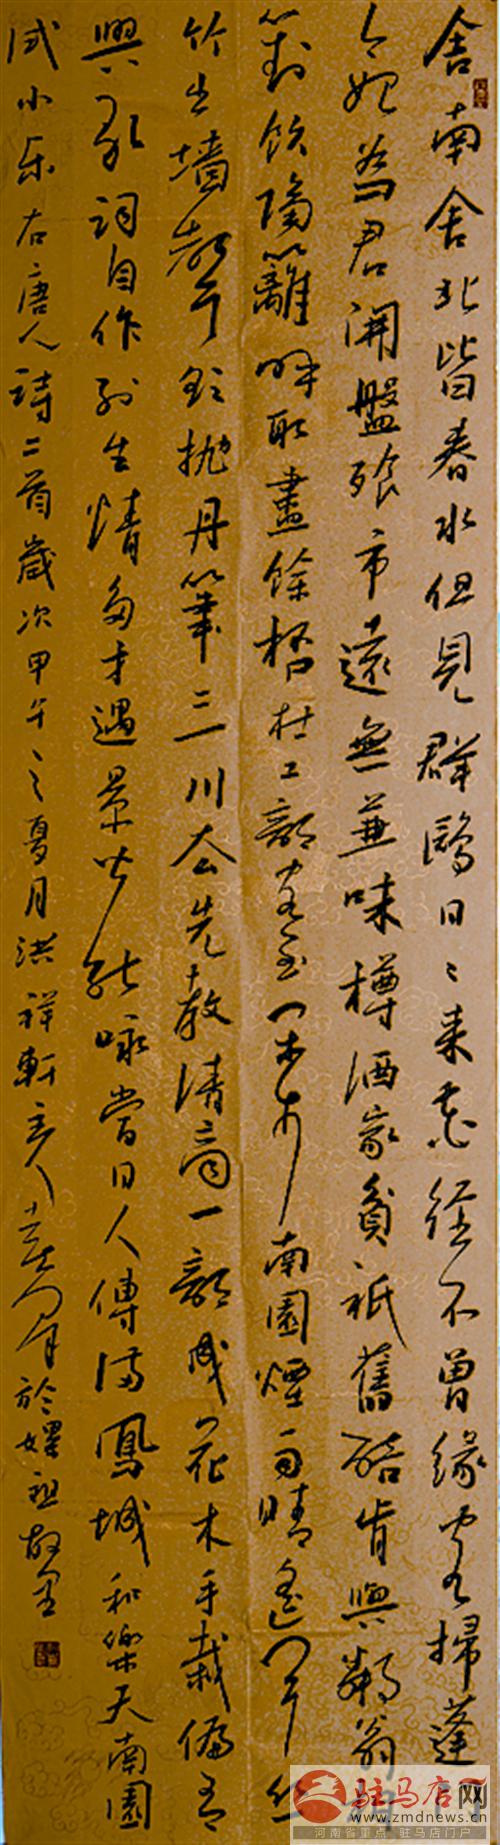 舍南舍北皆春水但見群鷗日々来花徑不曾缘客掃蓬门
今始为君開盤飱市遠無兼味樽酒家貧祇舊醅肯與鄰翁相
對飲隔籬呼取盡餘杯杜工部客至闲步南園煙雨晴遥闻丝
竹出墙聲欲抛丹筆三川去先教清商一部成花木手栽偏有
興歌詞自作别生情多才遇景皆能咏當日人傳满鳳城和樂天南園
试小乐右唐人詩二首歲次甲午之夏月洪祥軒主人於嫘祖故里
驻马店网
www.zmdnews.cn
河南省重点 驻马店门户